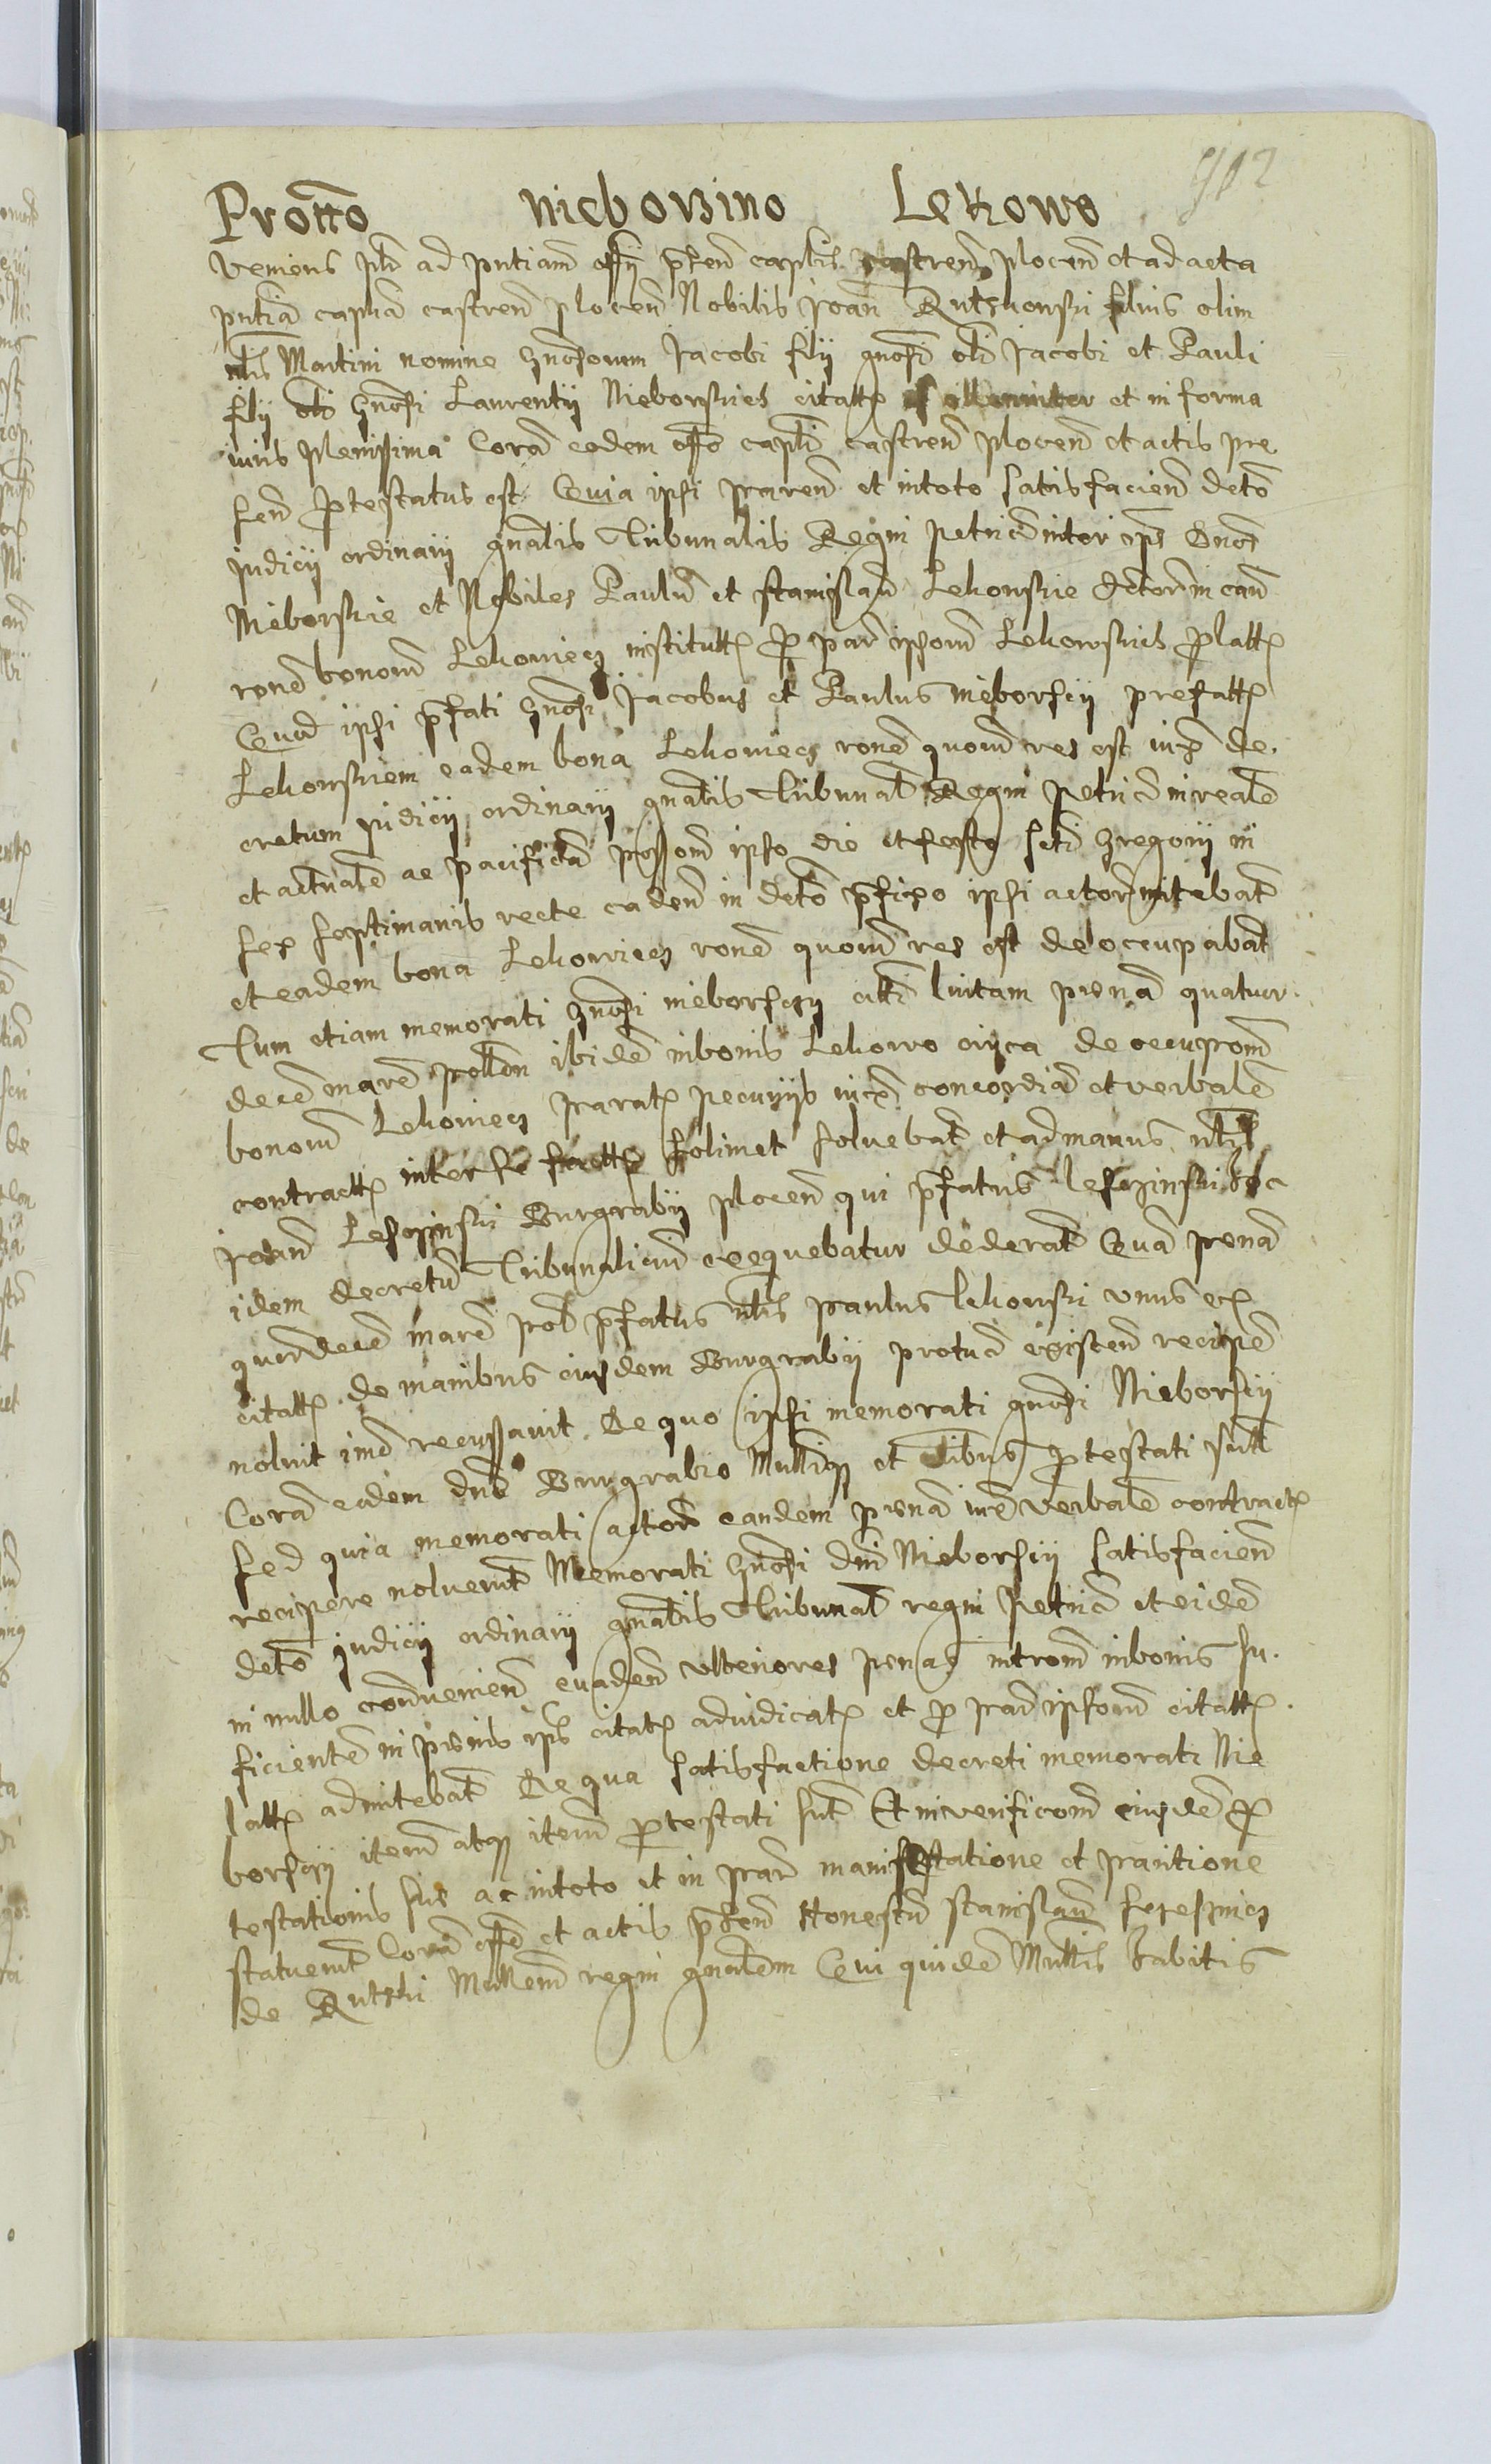 902
Protto nieborzino Lekowo
Veniens ptr ad pntiam offy prsen captlis castren plocen et ad acta
pntia captia castren plocen Nobilis Joan Rutkowski filius olim
nlis Martini nomine gnosorum Jacobi fily gnosi oli Jacobi et Pauli
fily oli gnosi Laurenty Nieborskies citatt solleniter et in forma
iuris plenissima Cora eodem offo captli castren plocen et actis pre
sen ptestatus est Quia ipsi paren et intoto satisfacien deto
judicy ordinary gnalis Tribunalis Regni petric inter ips Gnos
Nieborskie et Nobiles Paulu et stanislau Lekowskie in cau
rone bonoru Lekowiecz institutt p par ipsoru Lekowskich platt
Quod ipsi pfati gnosi Jacobus et Paulus nieborscy prefatt
Lekowskiem eadem bona Lekowiecz rone quoru res est iux de
cretum judicy ordinary gnalis Tribunal Regni petric in reale
et actuale ac pacifica possom ipso die et festo scti gregory in
sex septimanis recte caden in deto pfixo ipsi actor mitebat
et eadem bona Lekowiecz rone quoru res est deoccupabat
Tum etiam memorati gnosi nieborscy citti luitam pœna quatuor
dece marc pollon ibide in bonis Lekowo circa deoccupaom
bonoru Lekowiecz parat pecunys iux concordia et verbale
contractt inter se factt solimet soluebat et ad manus nlis
joan Lesczinski Burgraby plocen qui pfatus lesczinski hoc
idem decretu Tribunaliciu exequebatur dederat Qua pœna
quatuordece marc pol pfatus nlis paulus lekowski unus ex
citatt de manibus eiusdem Burgraby protuc existen recipe
noluit imo recusavit De quo ipsi memorati gnosi Nieborscy
Cora eodem dno Burgrabio Mullisq et ptestati sunt
sed quia memorati actor eandem pœna iux verbale contract
recipere noluerut Memorati gnosi dni Nieborscy satisfacien
deto judicy ordinary gnalis Tribunal regni petric et eide
in nullo contravenien evaden ulteriores penas introm in bonis su
ficiente in pœnis ips citatt adiudicatt et p par ipsoru citatt
latt admitebat De qua satisfactione decreti memorati Nie
borscy iteru atq iteru ptestati sut Et in verificaom eiusde p
testationis sue ac intoto et in par manifestatione et paritione
statuerut Cora offo et actis prsen Honestu stanislau
de Rutki Mullem regni gnalem Qui quide Mullis habitis